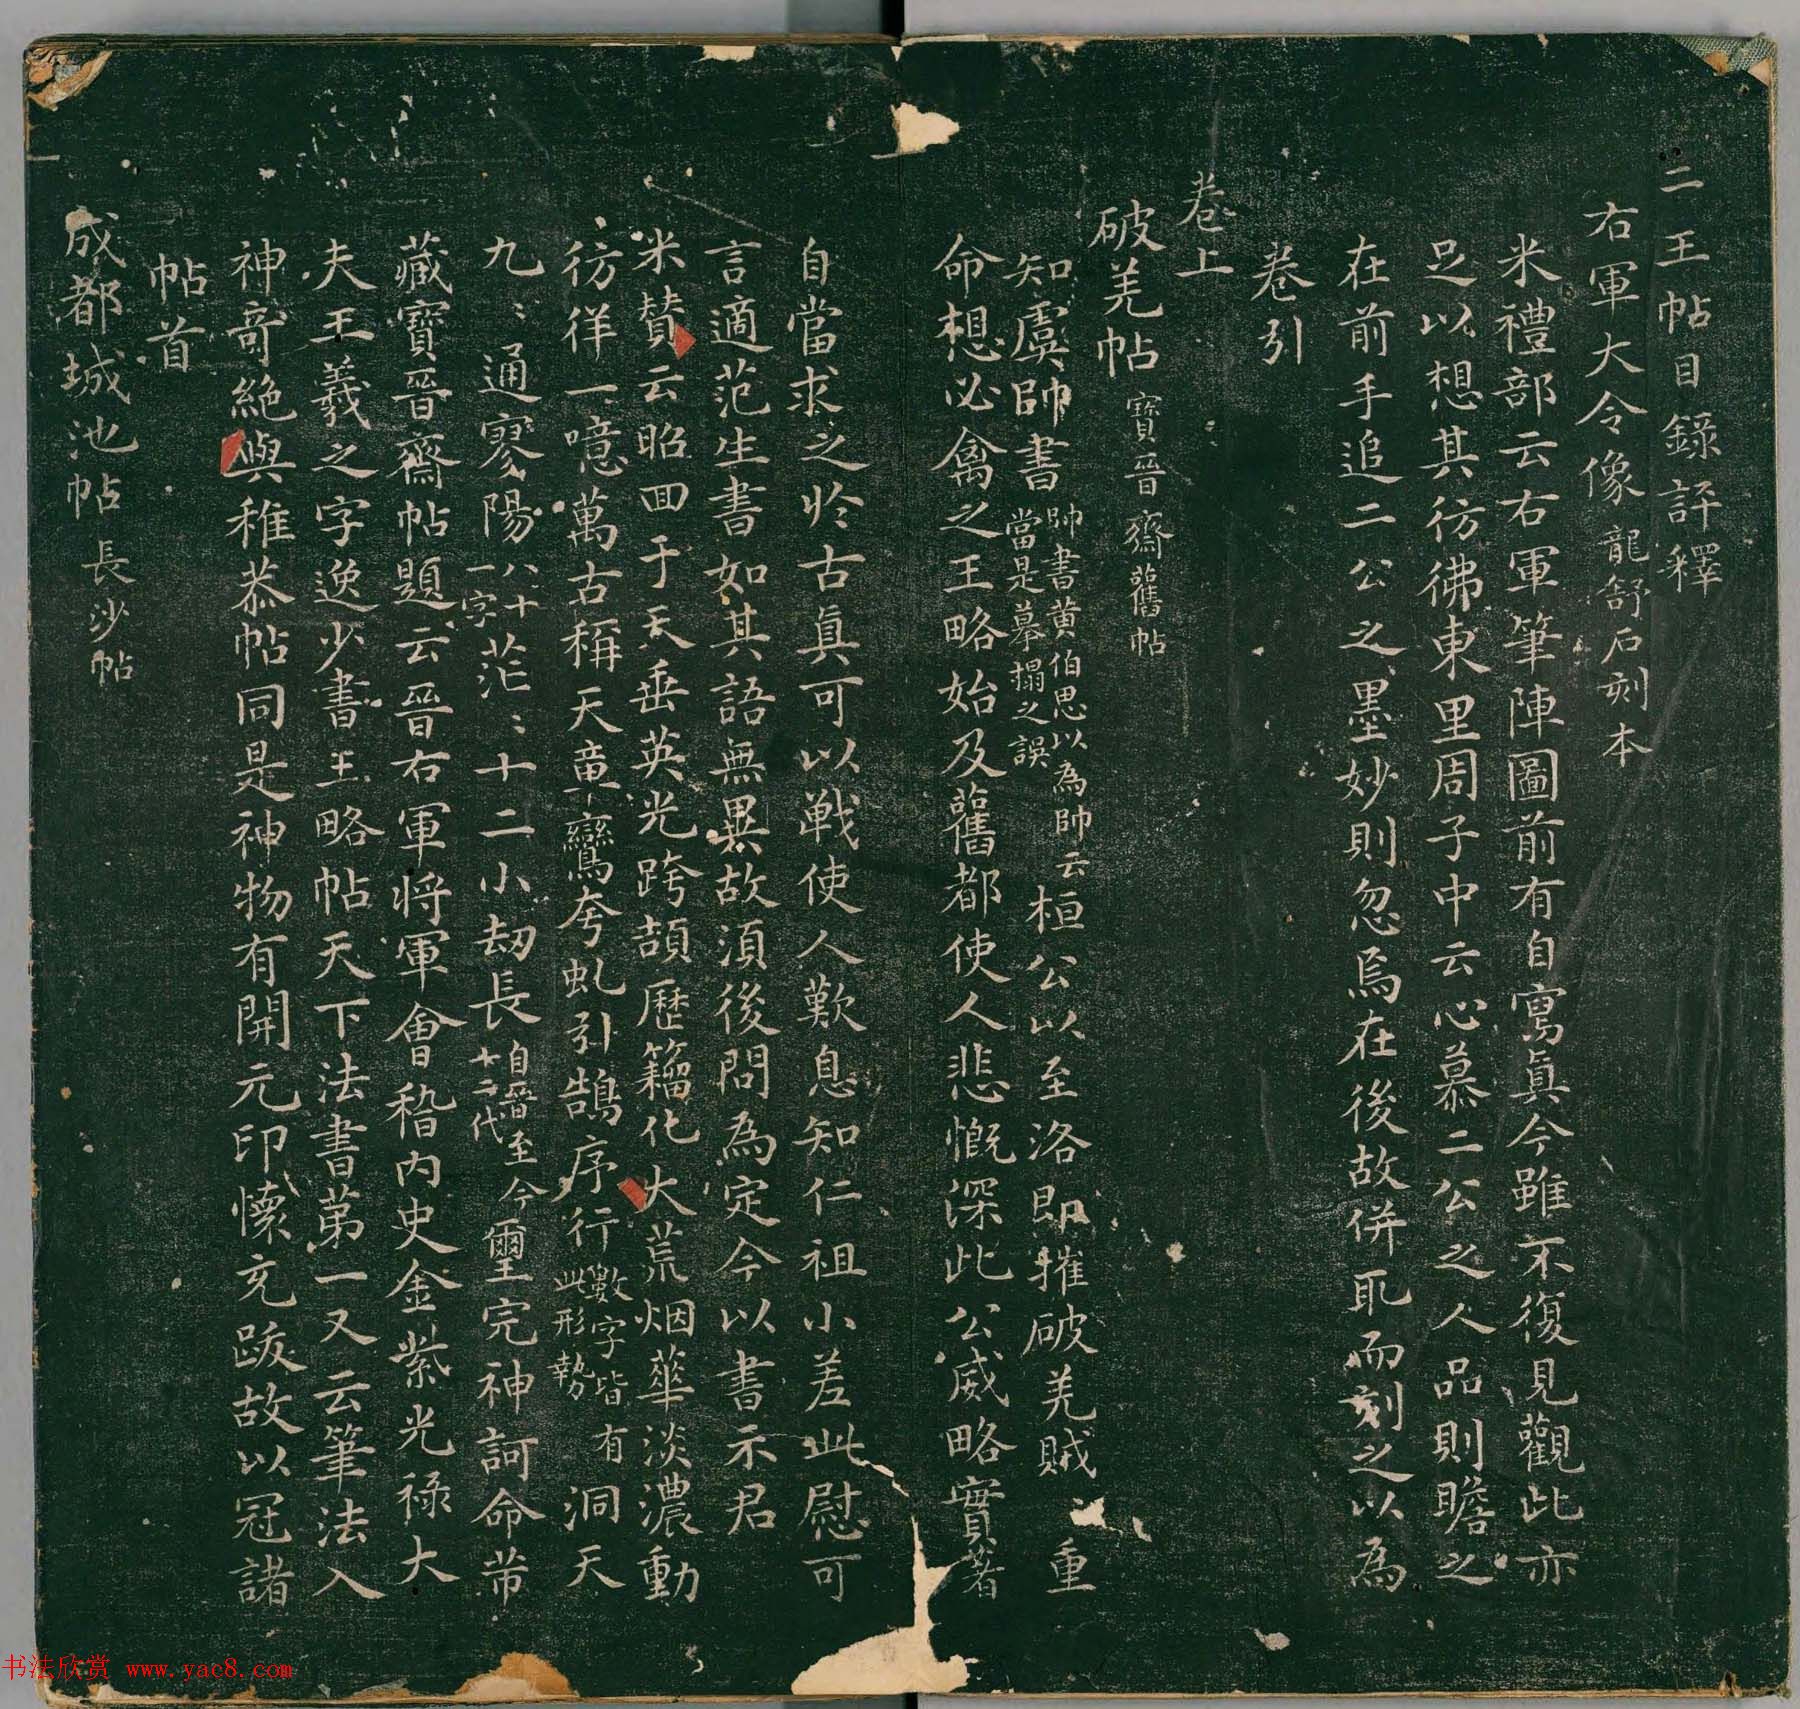 二王帖目錄評釋
右軍大令像 龍舒石刻本
米禮部云右軍筆陣圖前有自寫真今雖不復見觀此亦
足以想其彷彿東里周子中云心慕二公之人品則瞻之
在前手追二公之墨妙則忽焉在後故併取而刻之以為
卷引
卷上
破羌帖 寶晉齋舊帖
知虞帥書 帥書黃伯思以為帥云當是摹搨之誤 桓公以至洛即摧破羌賊重
命想必禽之王略始及舊都使人悲慨深此公威略實著
自當求之於古真可以戰使人歎息知仁祖小差此慰可
言適范生書如其語無異故須後問為定今以書示君
米贊云昭回于天垂英光跨頡歷籀化大荒烟華淡濃動
彷徉一噫萬古稱天章鸞夸虬引鵠序行 數字皆有此形勢 洞天
九〻通寥陽 八十一字 茫〻十二小劫長 自晉至今十二代 璽完神訶命芾
藏寶晉齋帖題云晉右軍將軍會稽內史金紫光祿大
夫王羲之字逸少書王略帖天下法書第一又云筆法入
神奇絕與稚恭帖同是神物有開元印懷充跋故以冠諸
帖首
成都城池帖 長沙帖
书法欣赏 www.yac8.com